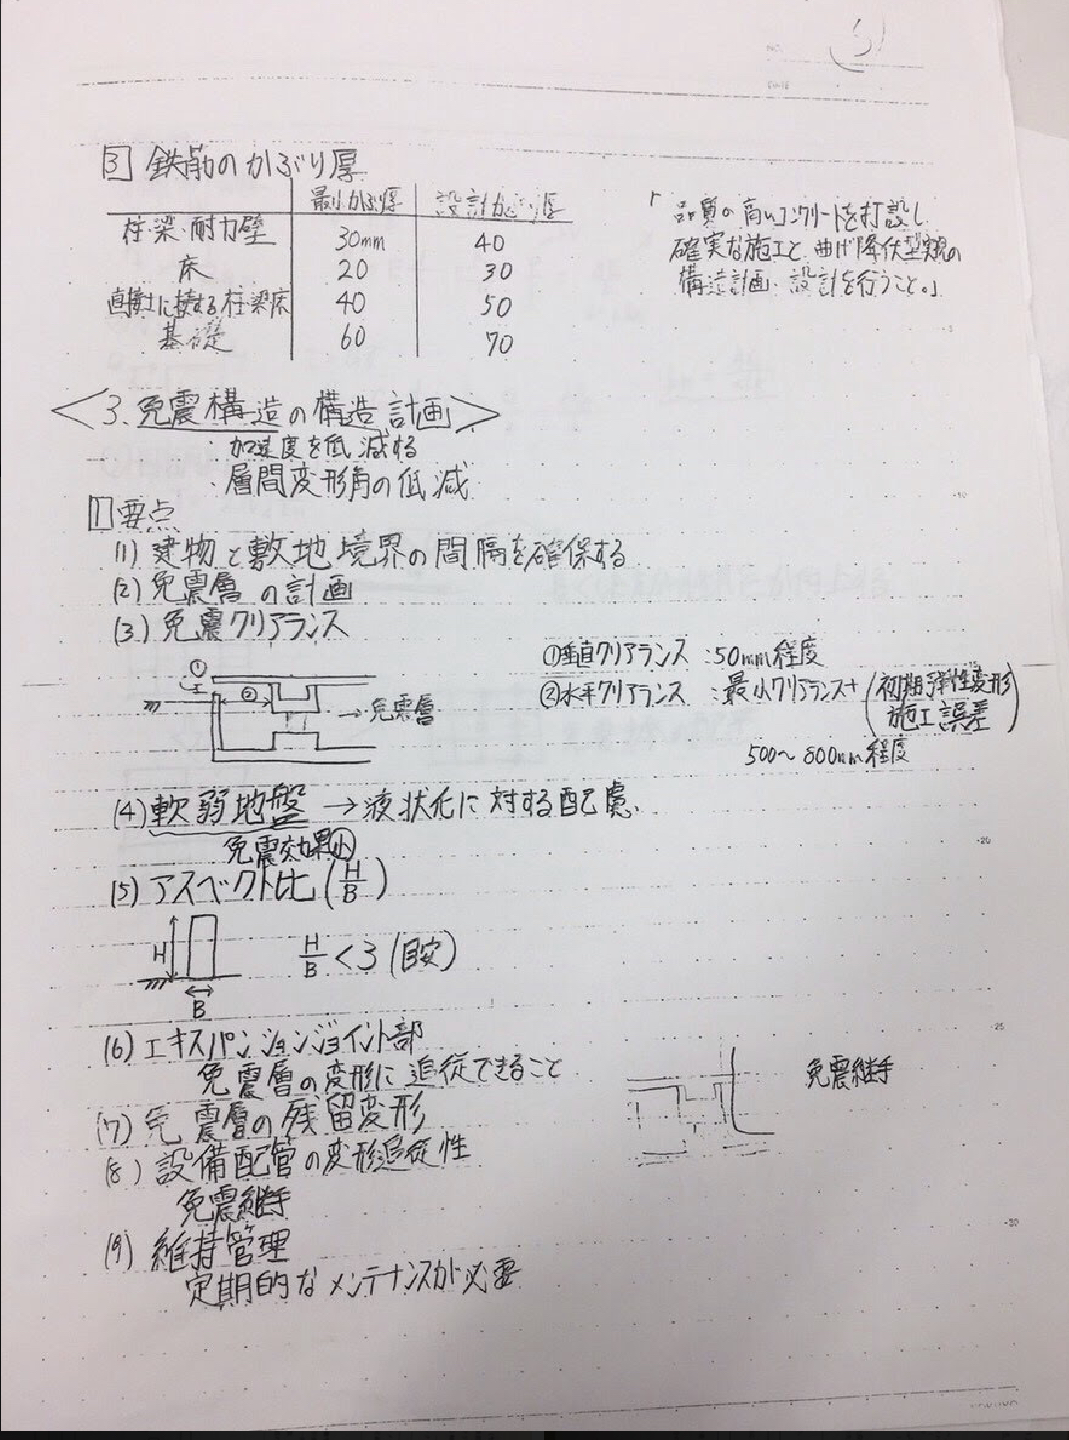 5
③ 鉄筋のかぶり厚
最小かぶり厚 設計かぶり厚
柱・梁・耐力壁 30mm 40
床 20 30
直接土に接する柱梁床 40 50
基礎 60 70
「品質の高いコンクリートを打設し
確実な施工と曲げ降伏型実現の
構造計画・設計を行うこと。」
<3.免震構造の構造計画>
・加速度を低減する
・層間変形角の低減
1 要点
(1) 建物と敷地境界の間隔を確保する
(2) 免震層の計画
(3) 免震クリアランス
①
②
→免震層
①垂直クリアランス :50mm程度
②水平クリアランス :最小クリアランス+(初期弾性変形
施工誤差)
500〜800mm程度
(4) 軟弱地盤 → 液状化に対する配慮.
免震効果小
(5) アスペクト比 (H/B)
H
B
H/B < 3 (目安)
(6) エキスパンションジョイント部
免震層の変形に追従できること
(7) 免震層の残留変形
(8) 設備配管の変形追従性
免震継手
免震継手
(9) 維持管理
定期的なメンテナンスが必要